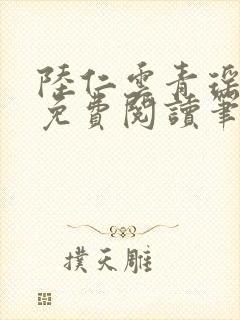 陸仁雲青瑤
免費閱讀筆
撲天雕